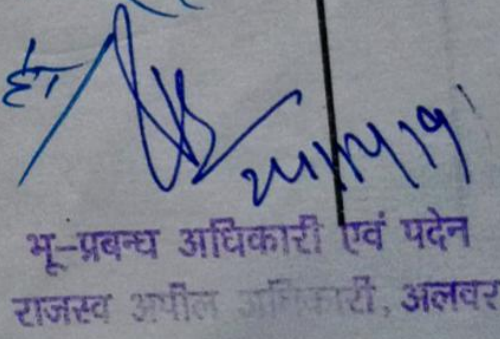 ह/
भू-प्रबन्ध अधिकारी एवं पदेन
राजस्व अपील अधिकारी, अलवर